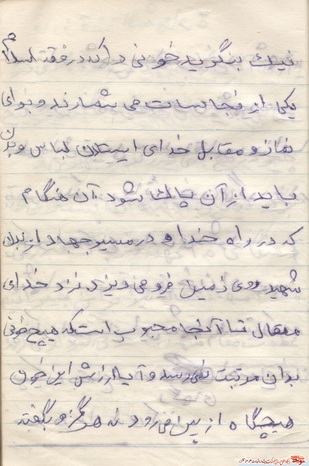 نیک بنگرید خونی را که در فقه اسلام
یکی از نجاسات می شمارند و برای
نماز و مقابل خدای ایستادن لباس و بدن
باید از آن پاک شود آن هنگام
که در راه خدا و در مسیر جهاد از بدن
شهید روی زمین فرو می ریزد نزد خدای
متعال تا آنجا محبوب است که هیچ خونی
بدان مرتبت نمی رسد و آیا ارزش این خون
هیچگاه از بین می رود نه هرگز و بگفته